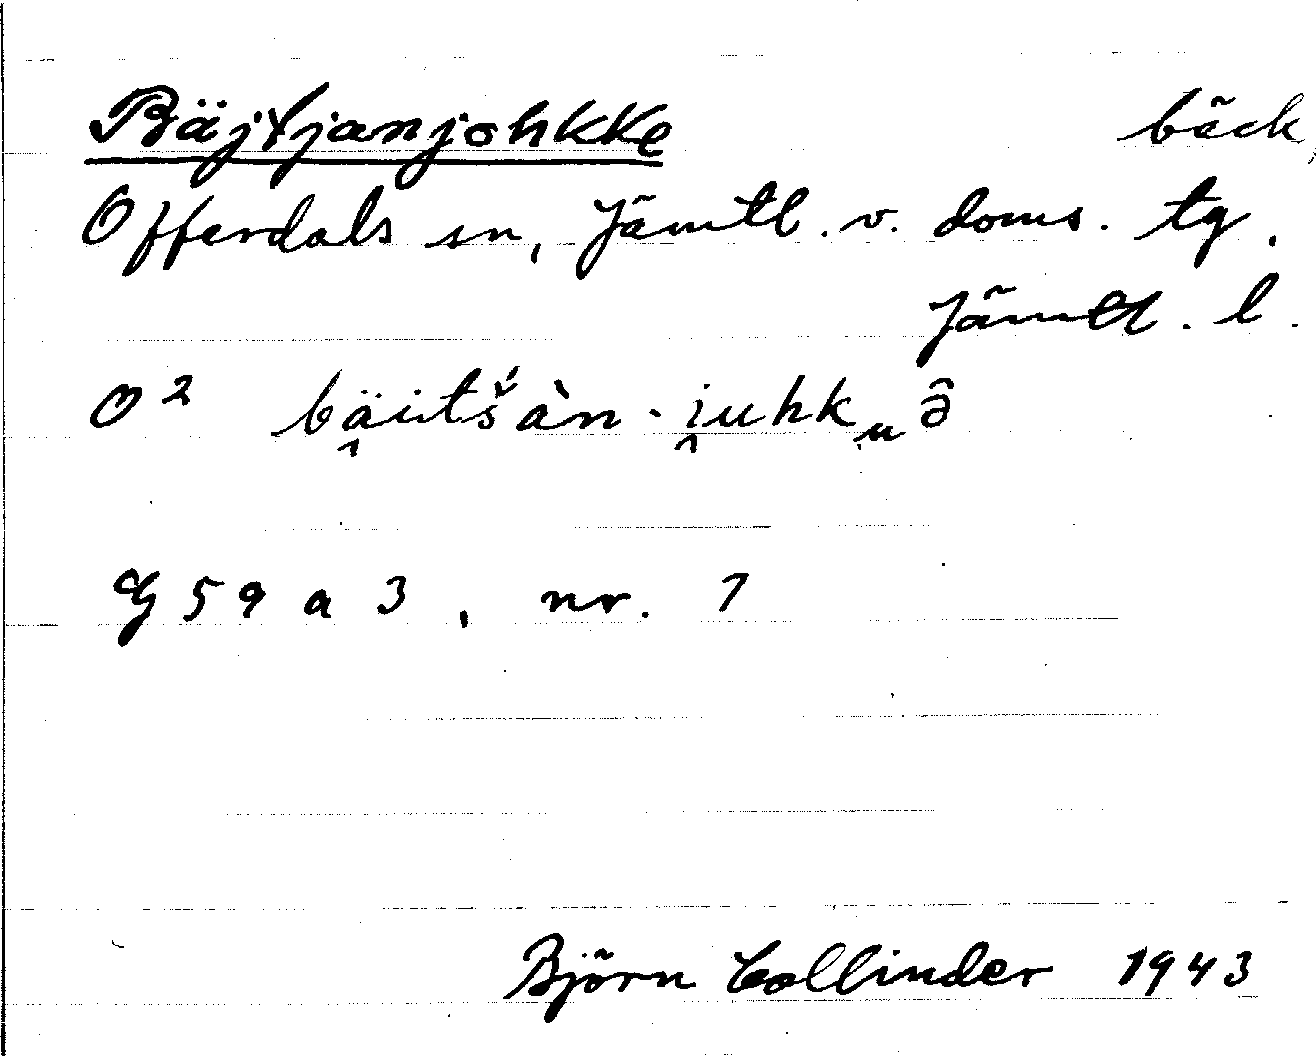 Bäjtjanjohkke bäck,
Offerdals sn, Jämtl. v. doms. tg.
Jämtl. l.
O² bä̭itš́àn-i̭uhkᵤə̂
G 59 a 3, nr. 7
Björn Collinder 1943